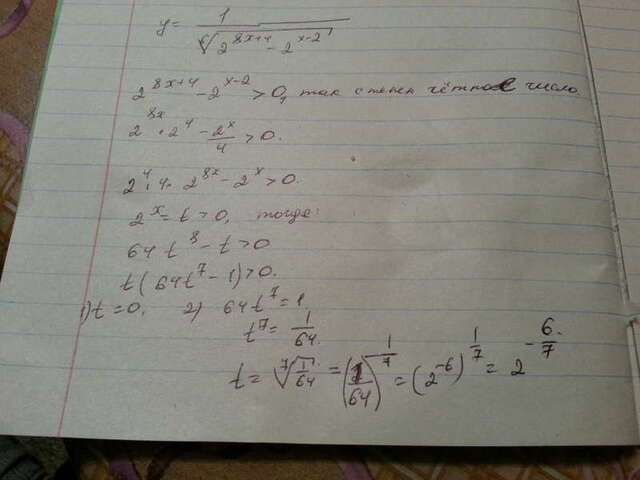 y = 1 / ⁶√(2^(8x+4) - 2^(x-2))
2^(8x+4) - 2^(x-2) > 0, так степен чётное число
2^(8x) · 2^4 - 2^x/4 > 0.
2^4 · 4 · 2^(8x) - 2^x > 0.
2^x = t > 0, тогда:
64 t^8 - t > 0
t(64t^7 - 1) > 0.
1) t = 0. 2) 64t^7 = 1
t^7 = 1/64.
t = ⁷√(1/64) = (1/64)^(1/7) = (2^(-6))^(1/7) = 2^(-6/7).